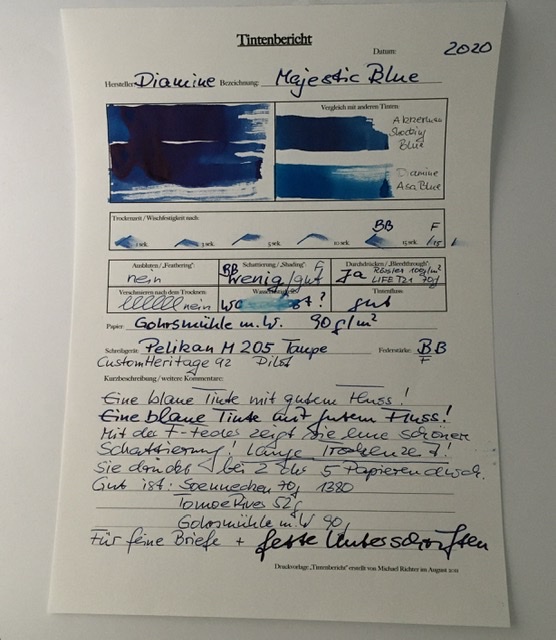 Tintenbericht
Datum: 2020
Hersteller Diamine Bezeichnung: Majestic Blue
Vergleich mit anderen Tinten:
Akkerman
Shocking
Blue
Diamine
Asa Blue
Trockenzeit / Wischfestigkeit nach:
BB F
1 sek. 3 sek. 5 sek. 10 sek. 15 sek. /15
Ausbluten / „Feathering“: Schattierung / „Shading“: Durchdrücken / „Bleedthrough“:
nein BB wenig/gut F Ja 100g/m² LIFE 70g
Verschmieren nach dem Trocknen: Tintenfluss:
nein ? gut
Papier: Gohrsmühle m.W. 90g/m²
Schreibgerät: Pelikan M 205 Taupe Federstärke: BB
Custom Heritage 92 Pilot F
Kurzbeschreibung / weitere Kommentare:
Eine blaue Tinte mit gutem Fluss!
Eine blaue Tinte mit gutem Fluss!
Mit der F-Feder zeigt sie eine schöne
Schattierung! Lange Trockenzeit!
Sie drückt bei 2 5 Papieren durch.
Gut ist: Soennecken 70g 1380
Tomoe River 52g
Gohrsmühle m.W 90g
Für feine Briefe + fette Unterschriften
Druckvorlage „Tintenbericht“ erstellt von Michael Richter im August 2011